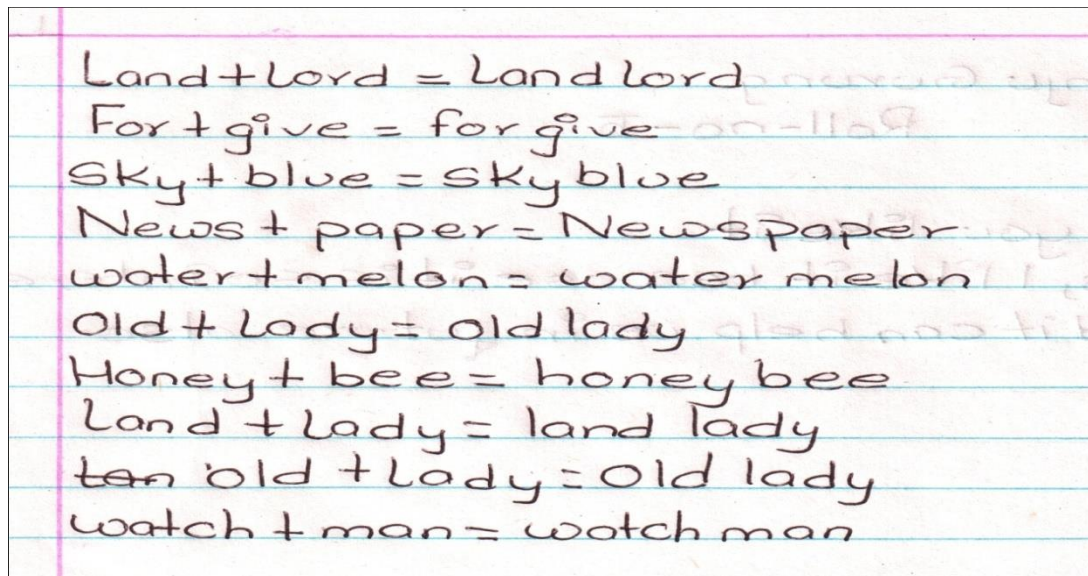 Land + Lord = Land lord
For + give = for give
Sky + blue = sky blue
News + paper = Newspaper
water + melon = water melon
Old + Lady = old lady
Honey + bee = honey bee
Land + Lady = land lady
tan old + Lady = old lady
watch + man = watch man